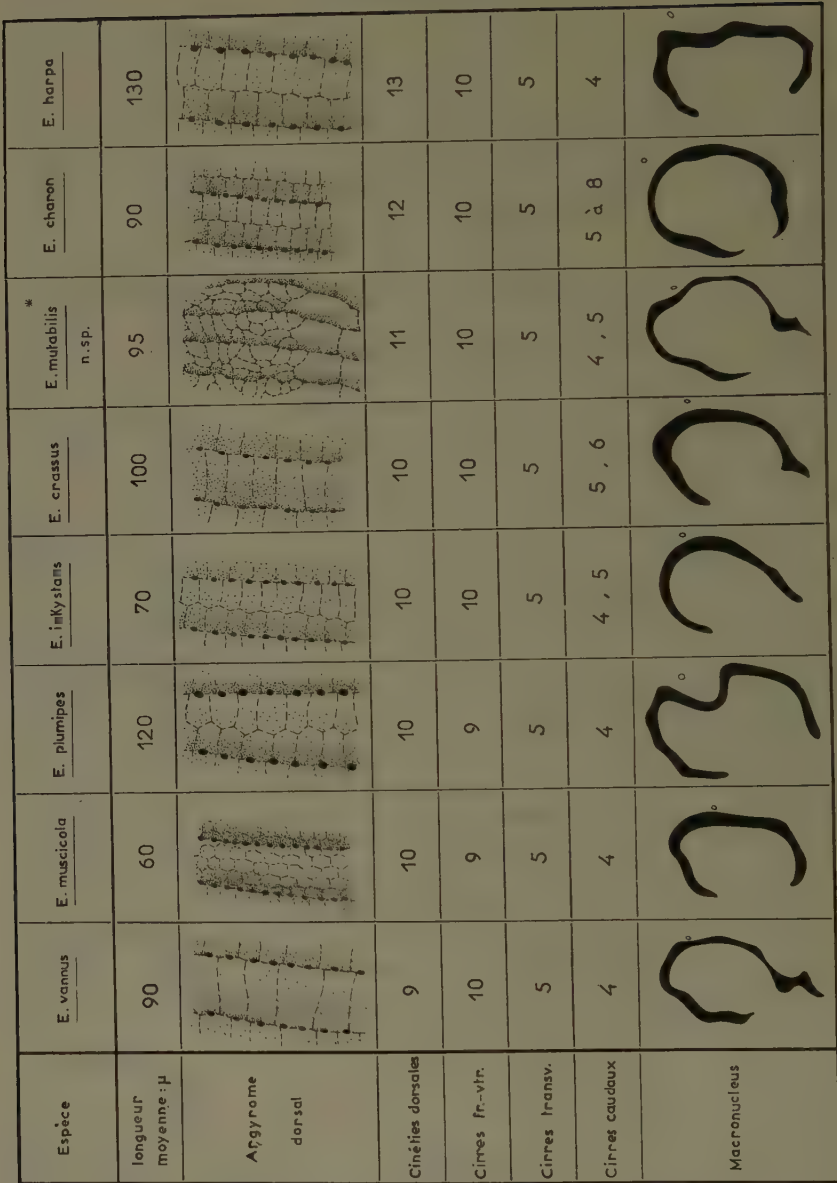 Espèce E. vannus E. muscicola E. plumipes E. inKystans E. crassus E. mutabilis * n. sp. E. charon E. harpa
longueur moyenne : µ 90 60 120 70 100 95 90 130
Argyrome dorsal
Cinéties dorsales 9 10 10 10 10 11 12 13
Cirres fr.-vtr. 10 9 9 10 10 10 10 10
Cirres transv. 5 5 5 5 5 5 5 5
Cirres caudaux 4 4 4 4 , 5 5 , 6 4 , 5 5 à 8 4
Macronucleus